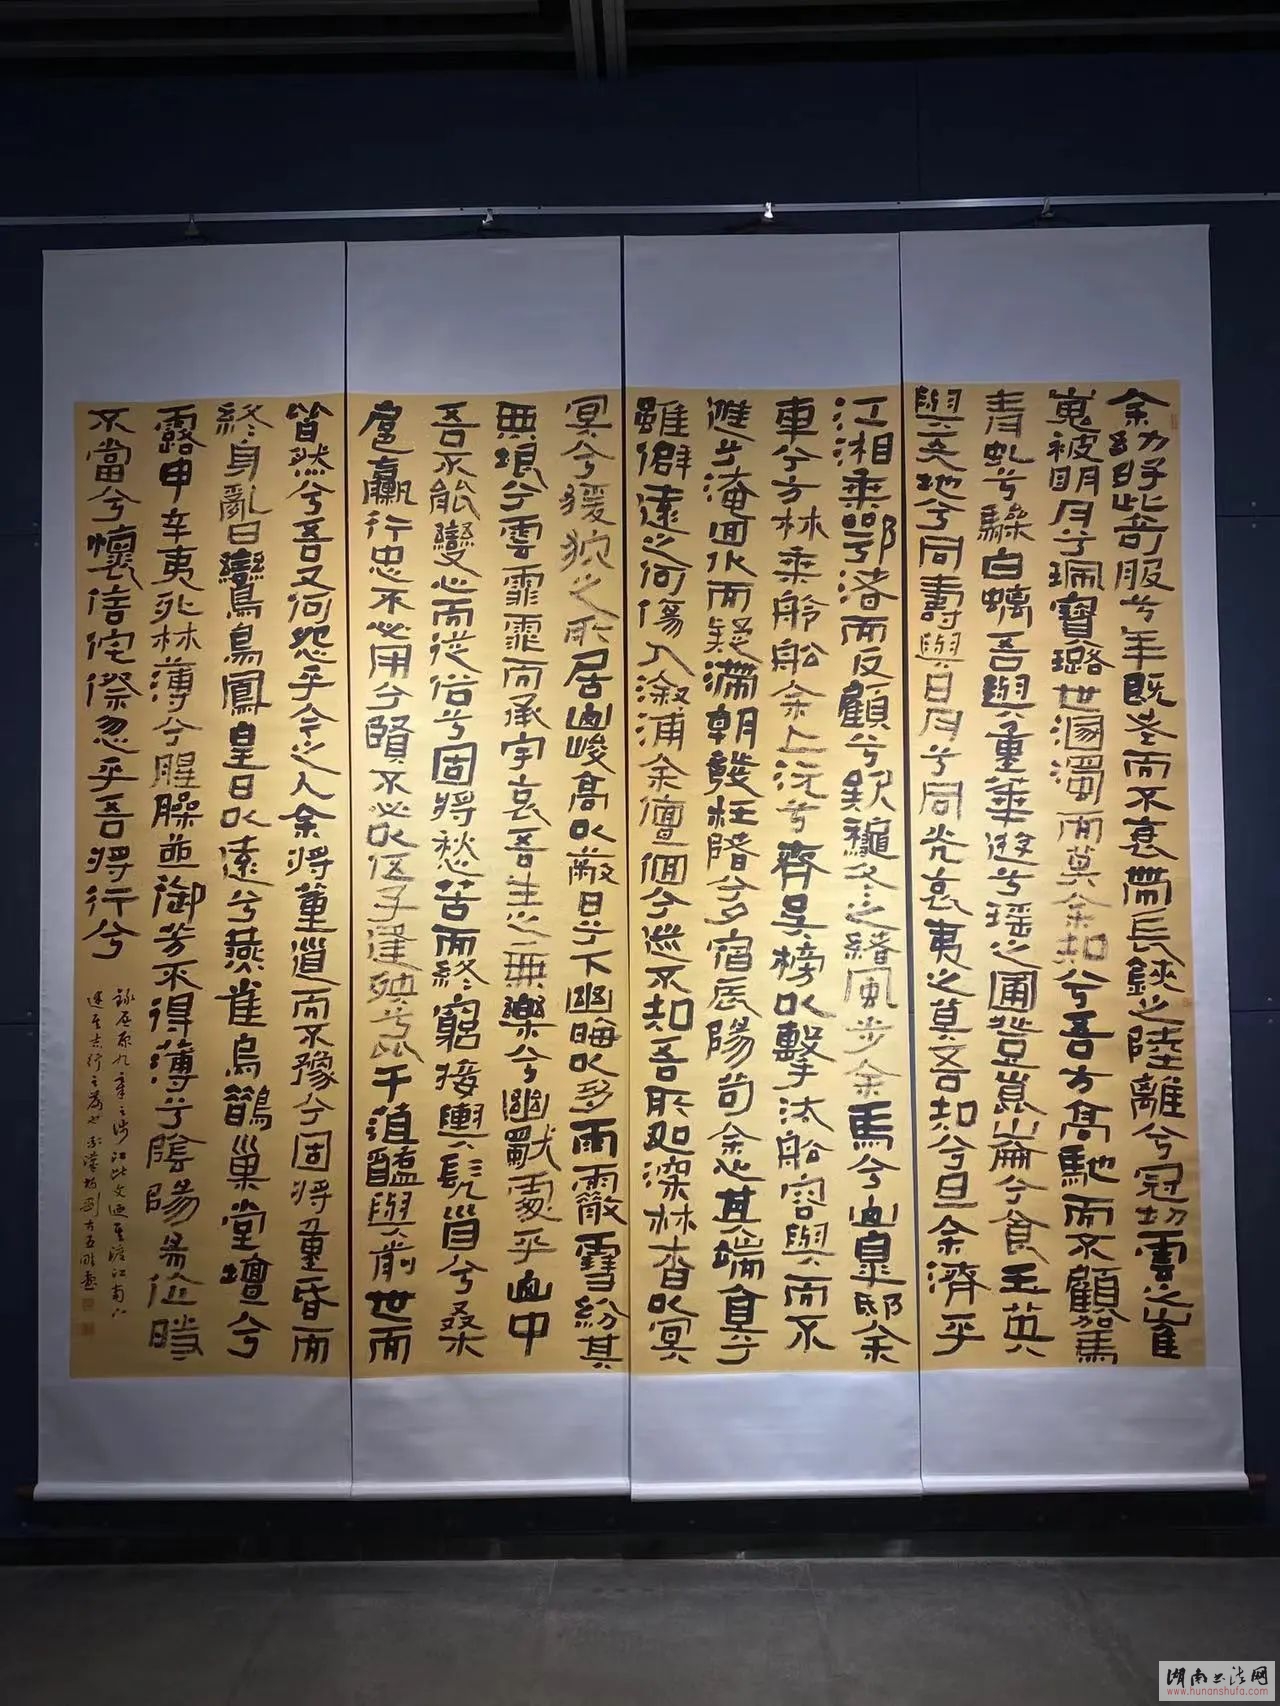 余幼好此奇服兮年既老而不衰帶長鋏之陸離兮冠切雲之崔
嵬被明月兮珮寶璐世溷濁而莫余知兮吾方高馳而不顧駕
青虬兮驂白螭吾與重華遊兮瑤之圃登崑崙兮食玉英
與天地兮同壽與日月兮同光哀夷之莫吾知兮旦余濟乎
江湘乘鄂渚而反顧兮欸秋冬之緒風步余馬兮山皋邸余
車兮方林乘舲船余上沅兮齊吳榜以擊汰船容與而不
進兮淹回水而疑滯朝發枉陼兮夕宿辰陽苟余心其端直兮
雖僻遠之何傷入溆浦余儃佪兮迷不知吾所如深林杳以冥
冥兮猨狖之所居山峻高以蔽日兮下幽晦以多雨霰雪紛其
無垠兮雲霏霏而承宇哀吾生之無樂兮幽獨處乎山中
吾不能變心而從俗兮固將愁苦而終窮接輿髡首兮桑
扈臝行忠不必用兮賢不必以伍子逢殃兮比干菹醢與前世而
皆然兮吾又何怨乎今之人余將董道而不豫兮固將重昏而
終身亂曰鸞鳥鳳皇日以遠兮燕雀烏鵲巢堂壇兮
露申辛夷死林薄兮腥臊並御芳不得薄兮陰陽易位時
不當兮懷信侘傺忽乎吾將行兮
錄屈原九章之涉江此文迺其渡江南
湖南书法网
www.hunanshufa.com